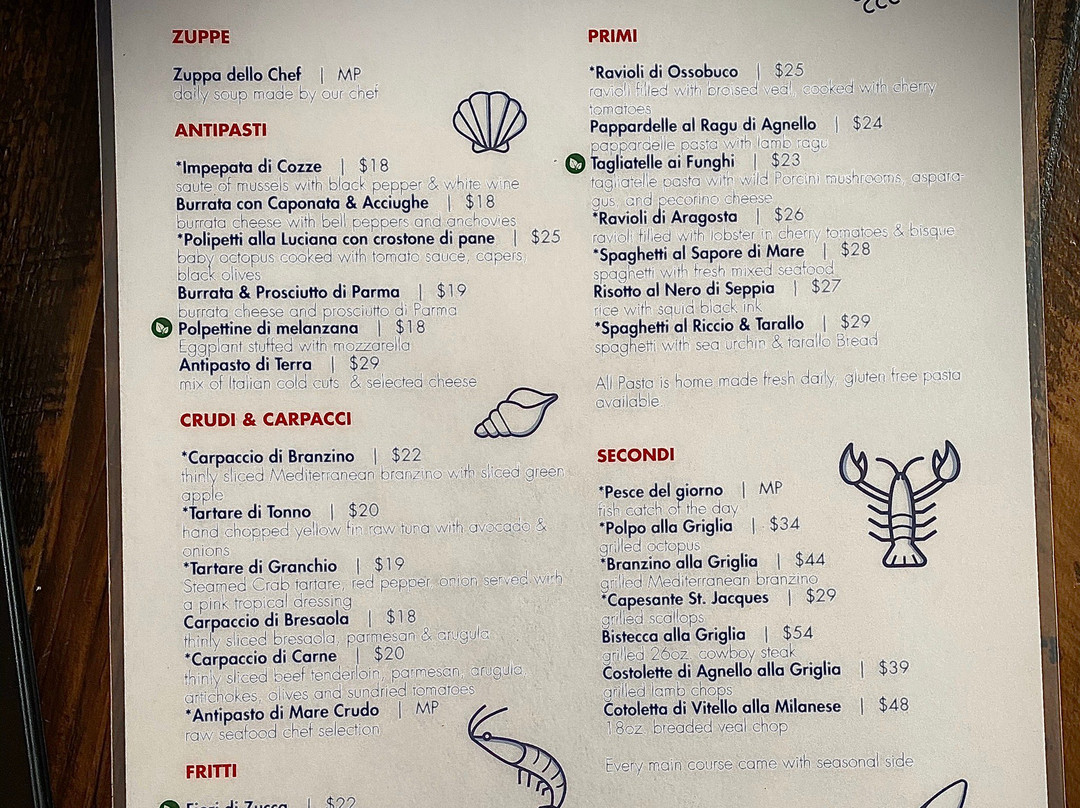 ZUPPE
Zuppa dello Chef | MP
daily soup made by our chef
ANTIPASTI
*Impepata di Cozze | $18
saute of mussels with black pepper & white wine
Burrata con Caponata & Acciughe | $18
burrata cheese with bell peppers and anchovies
*Polipetti alla Luciana con crostone di pane | $25
baby octopus cooked with tomato sauce, capers,
black olives
Burrata & Prosciutto di Parma | $19
burrata cheese and prosciutto di Parma
Polpettine di melanzana | $18
Eggplant stuffed with mozzarella
Antipasto di Terra | $29
mix of Italian cold cuts & selected cheese
CRUDI & CARPACCI
*Carpaccio di Branzino | $22
thinly sliced Mediterranean branzino with sliced green
apple
*Tartare di Tonno | $20
hand chopped yellow fin raw tuna with avocado &
onions
*Tartare di Granchio | $19
Steamed Crab tartare, red pepper, onion, served with
a pink tropical dressing
Carpaccio di Bresaola | $18
thinly sliced bresaola, parmesan & arugula
*Carpaccio di Carne | $20
thinly sliced beef tenderloin, parmesan, arugula,
artichokes, olives and sundried tomatoes
*Antipasto di Mare Crudo | MP
raw seafood chef selection
FRITTI
Fiori di Zucca | $22
PRIMI
*Ravioli di Ossobuco | $25
ravioli filled with braised veal, cooked with cherry
tomatoes
Pappardelle al Ragu di Agnello | $24
pappardelle pasta with lamb ragu
Tagliatelle ai Funghi | $23
tagliatelle pasta with wild Porcini mushrooms, aspara-
gus, and pecorino cheese
*Ravioli di Aragosta | $26
ravioli filled with lobster in cherry tomatoes & bisque
*Spaghetti al Sapore di Mare | $28
spaghetti with fresh mixed seafood
Risotto al Nero di Seppia | $27
rice with squid black ink
*Spaghetti al Riccio & Tarallo | $29
spaghetti with sea urchin & tarallo Bread
All Pasta is home made fresh daily, gluten free pasta
available.
SECONDI
*Pesce del giorno | MP
fish catch of the day
*Polpo alla Griglia | $34
grilled octopus
*Branzino alla Griglia | $44
grilled Mediterranean branzino
*Capesante St. Jacques | $29
grilled scallops
Bistecca alla Griglia | $54
grilled 26oz. cowboy steak
Costolette di Agnello alla Griglia | $39
grilled lamb chops
Cotoletta di Vitello alla Milanese | $48
18oz. breaded veal chop
Every main course came with seasonal side